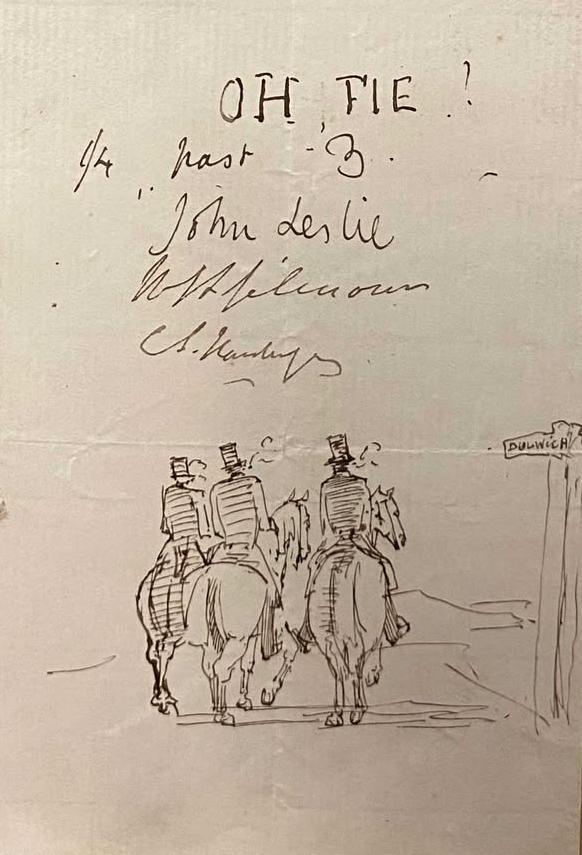 OH FIE !
1/4 past 3.
John Leslie
C S. Hardinge
DULWICH